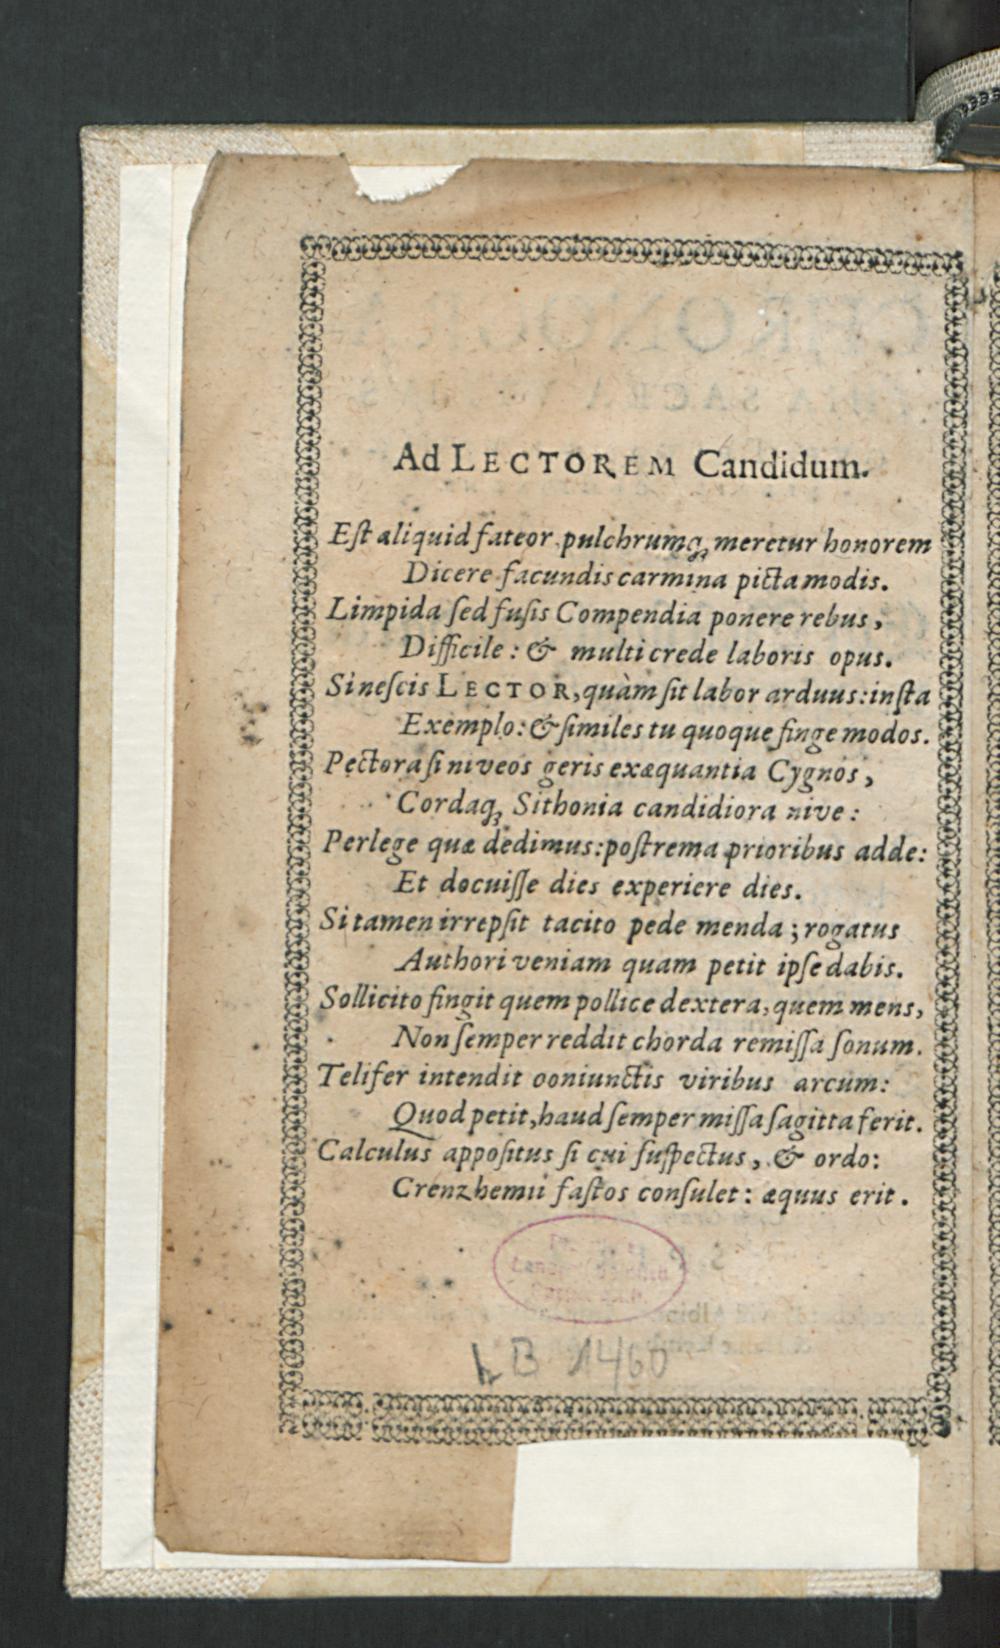 Ad LECTOREM Candidum.
Est aliquid fateor pulchrumq; meretur honorem
Dicere facundis carmina picta modis.
Limpida sed fusis Compendia ponere rebus,
Difficile: & multi crede laboris opus.
Si nescis LECTOR, quàm sit labor arduus: insta
Exemplo: & similes tu quoque finge modos.
Pectora si niveos geris exæquantia Cygnos,
Cordaq; Sithonia candidiora nive:
Perlege quæ dedimus: postrema prioribus adde:
Et docuisse dies experiere dies.
Si tamen irrepsit tacito pede menda; rogatus
Authori veniam quam petit ipse dabis.
Sollicito fingit quem pollice dextera, quem mens,
Non semper reddit chorda remissa sonum.
Telifer intendit ooniunctis viribus arcum:
Quod petit, haud semper missa sagitta ferit.
Calculus appositus si cui suspectus, & ordo:
Crenzhemii fastos consulet: æquus erit.
B 1460